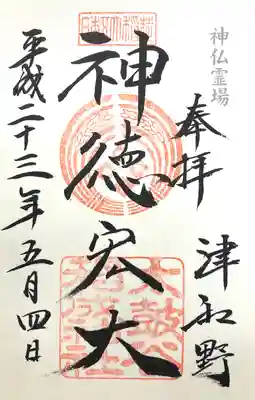 神仏霊場
奉拝
津和野
神徳宏大
平成二十三年五月四日